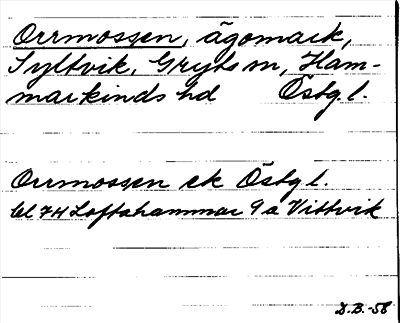 Orrmossen, ägomark,
Syltvik, Gryts sn, Ham-
markinds hd Östg.l.
Orrmossen ek Östg l.
bl 7H Loftahammar 9 a Vittvik
D.B.-58